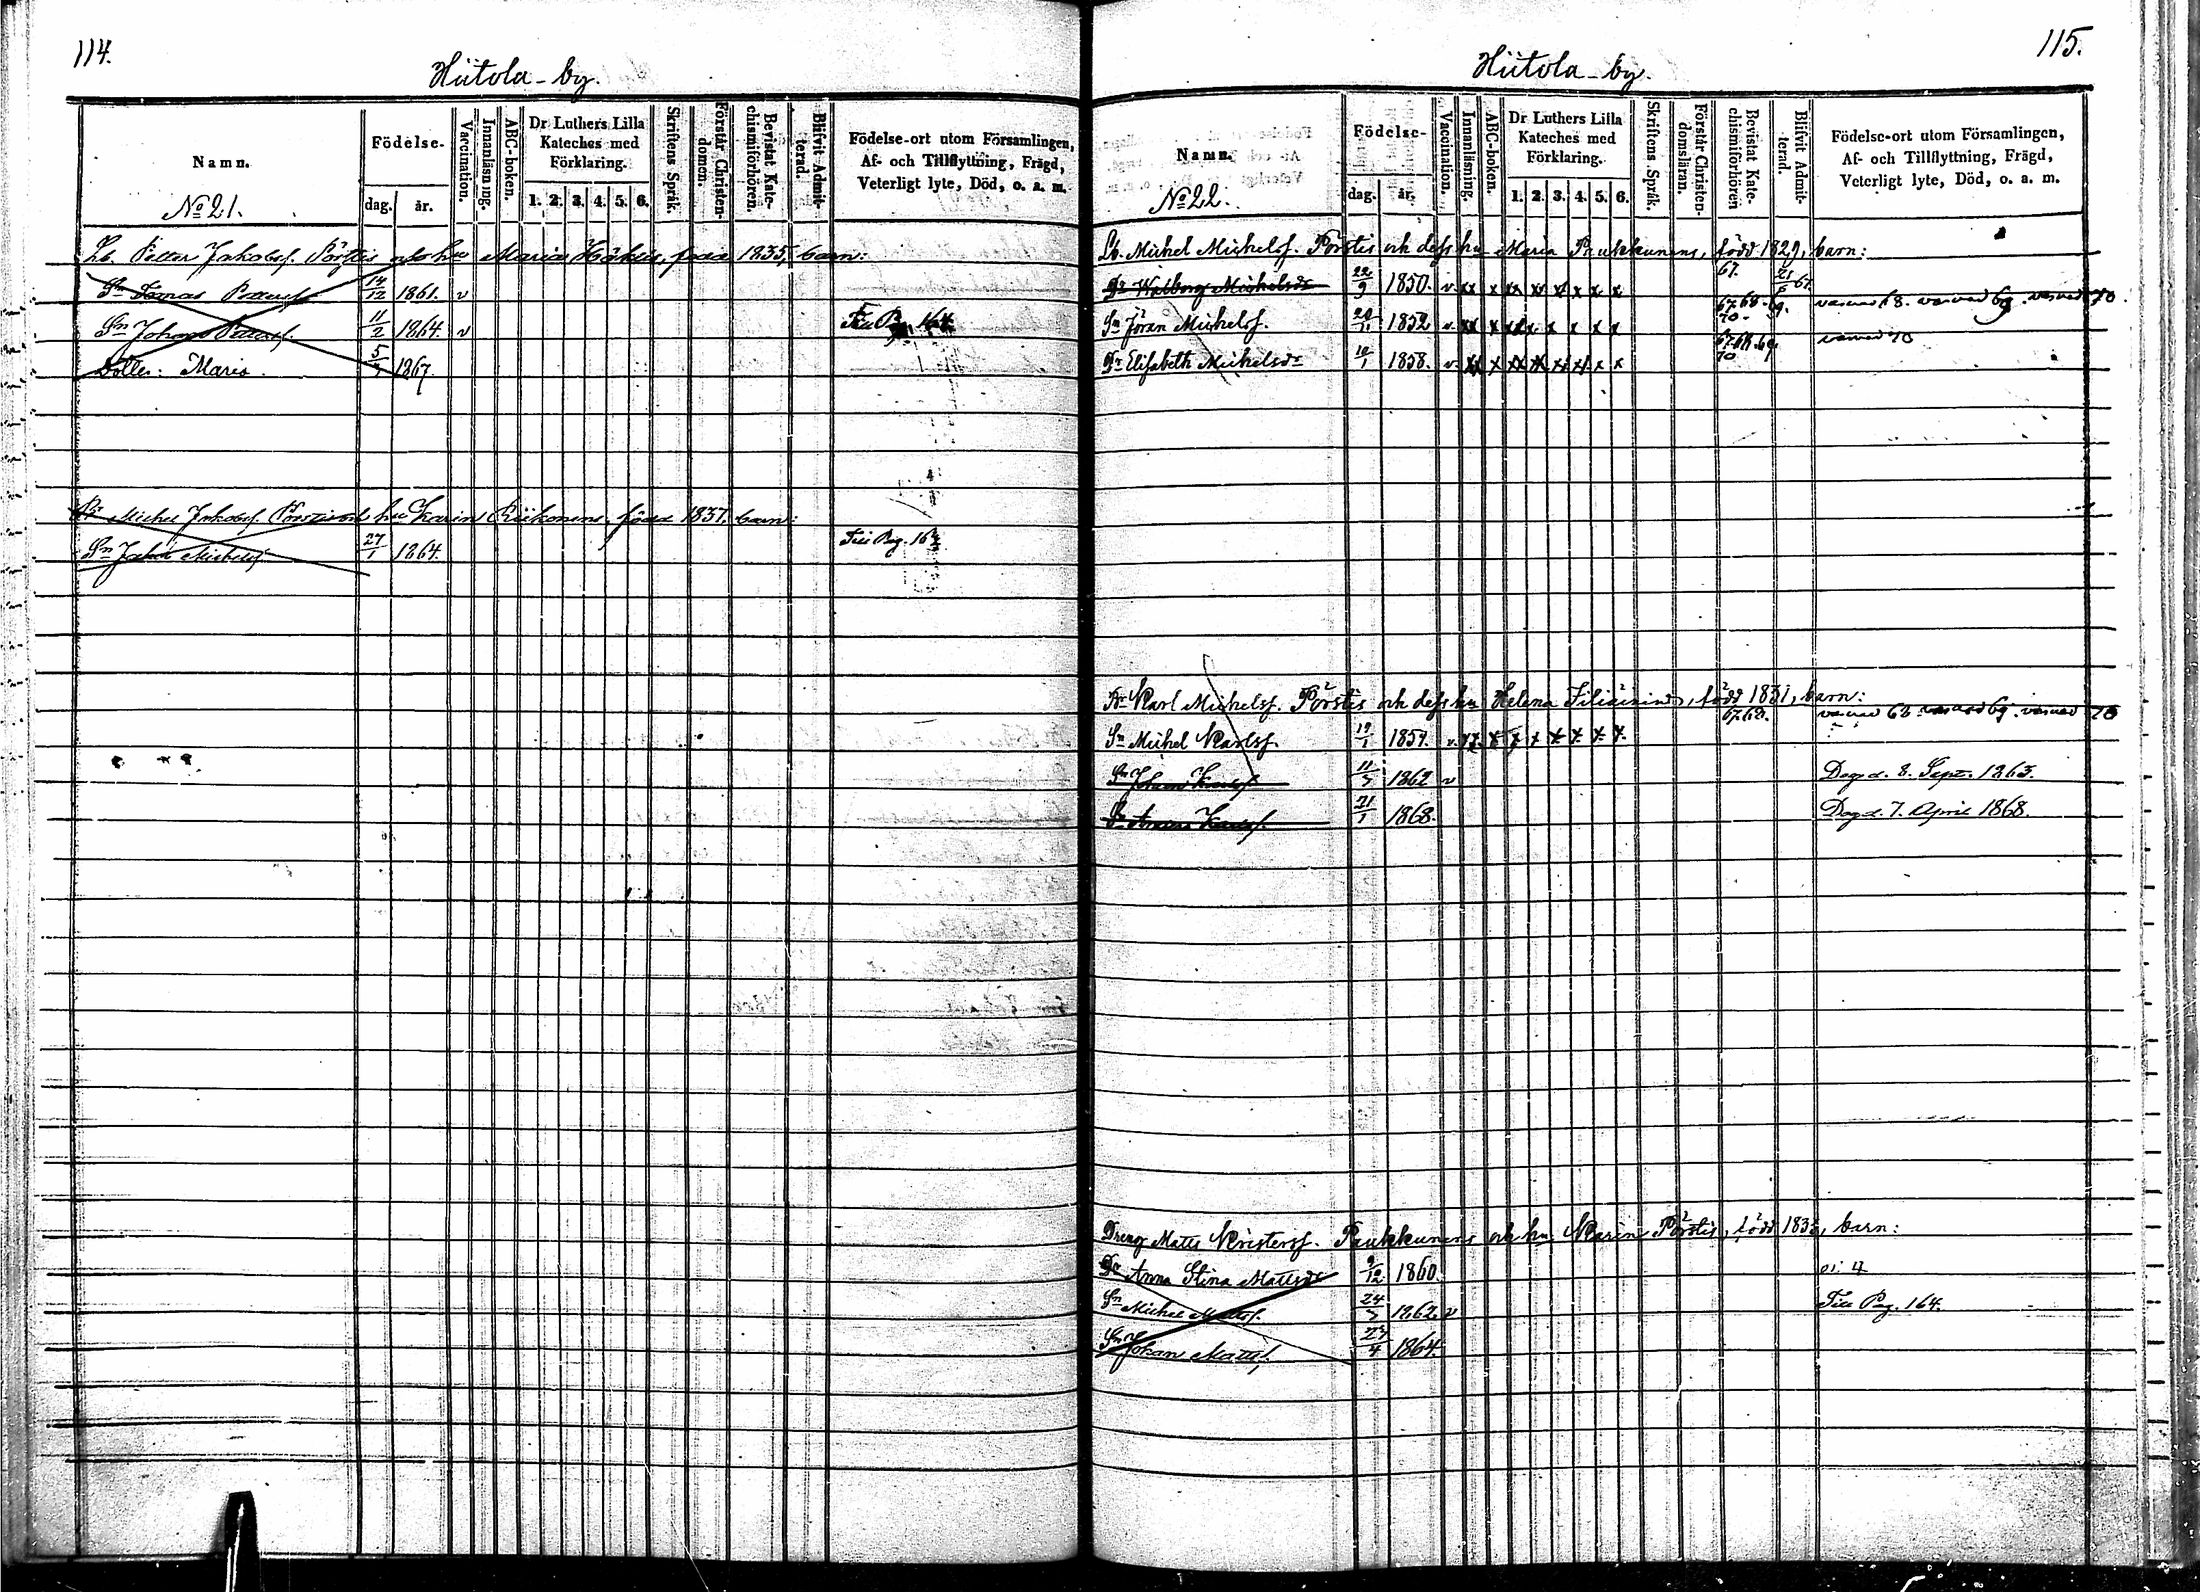 114.
Hiitola - by.
Namn.
No 21.
Födelse-
dag.
år.
Vaccination.
Innanläsning.
ABC-boken.
Dr Luthers Lilla
Kateches med
Förklaring.
1. 2. 3. 4. 5. 6.
Skriftens Språk.
Förstår Christen-
domen.
Bevistat Kate-
chismiförhören.
Blifvit Admit-
terad.
Födelse-ort utom Församlingen,
Af- och Tillflyttning, Frägd,
Veterligt lyte, Död, o. a. m.
Lb. Petter Jakobsf. Pörstis och hu Maria född 1835, barn:
Sn Tomas Pettersf. 14/12 1861. v
Sn Johan Pettersf. 11/2 1864. v Till Pag. 164.
Dotter: Maria. 1867.
Br Michel Jakobsf. Pörstis och hu Karin Riikonens, född 1837, barn:
Sn Michelsf. 27/1 1864. Till Pag. 164
115.
Hiitola - by.
Namn.
No 22.
Födelse-
dag.
år.
Vaccination.
Innanläsning.
ABC-boken.
Dr Luthers Lilla
Kateches med
Förklaring.
1. 2. 3. 4. 5. 6.
Skriftens Språk.
Förstår Christen-
domsläran.
Bevistat Kate-
chismiförhören
Blifvit Admit-
terad.
Födelse-ort utom Församlingen,
Af- och Tillflyttning, Frägd,
Veterligt lyte, Död, o. a. m.
Lb. Michel Michelsf. Pörstis och dess hu Maria Paukkunens, född 1829, barn:
Dr Walborg Michelsdr 22/9 1850. v. xx x xx x x x x x 67. 67.
Sn Jöran Michelsf. 1852 v. xx x xx x x x x x 67. 68. 69. 70.
Dr Elisabeth Michelsdr 10/1 1858. v. xx x xx xx x x x x 67. 68. 69. 70
Br Karl Michelsf. Pörstis och dess hu Helena född 1831, barn:
Sn Michel Karlsf. 1857. v. 67. 68.
Sn Johan Karlsf. 1862 v Död d. 8. Sept. 1863.
Sn Karlsf. 21/1 1868. Död d. 7. April 1868.
Dreng Matts Kristersf. Paukkunens och hu Karin Pörstis, född barn:
Dr Anna Stina Mattsdr 9/12 1860.
Sn Michel Mattsf. 1862. v Till Pag. 164.
Sn Johan Mattsf. 27/4 1864.